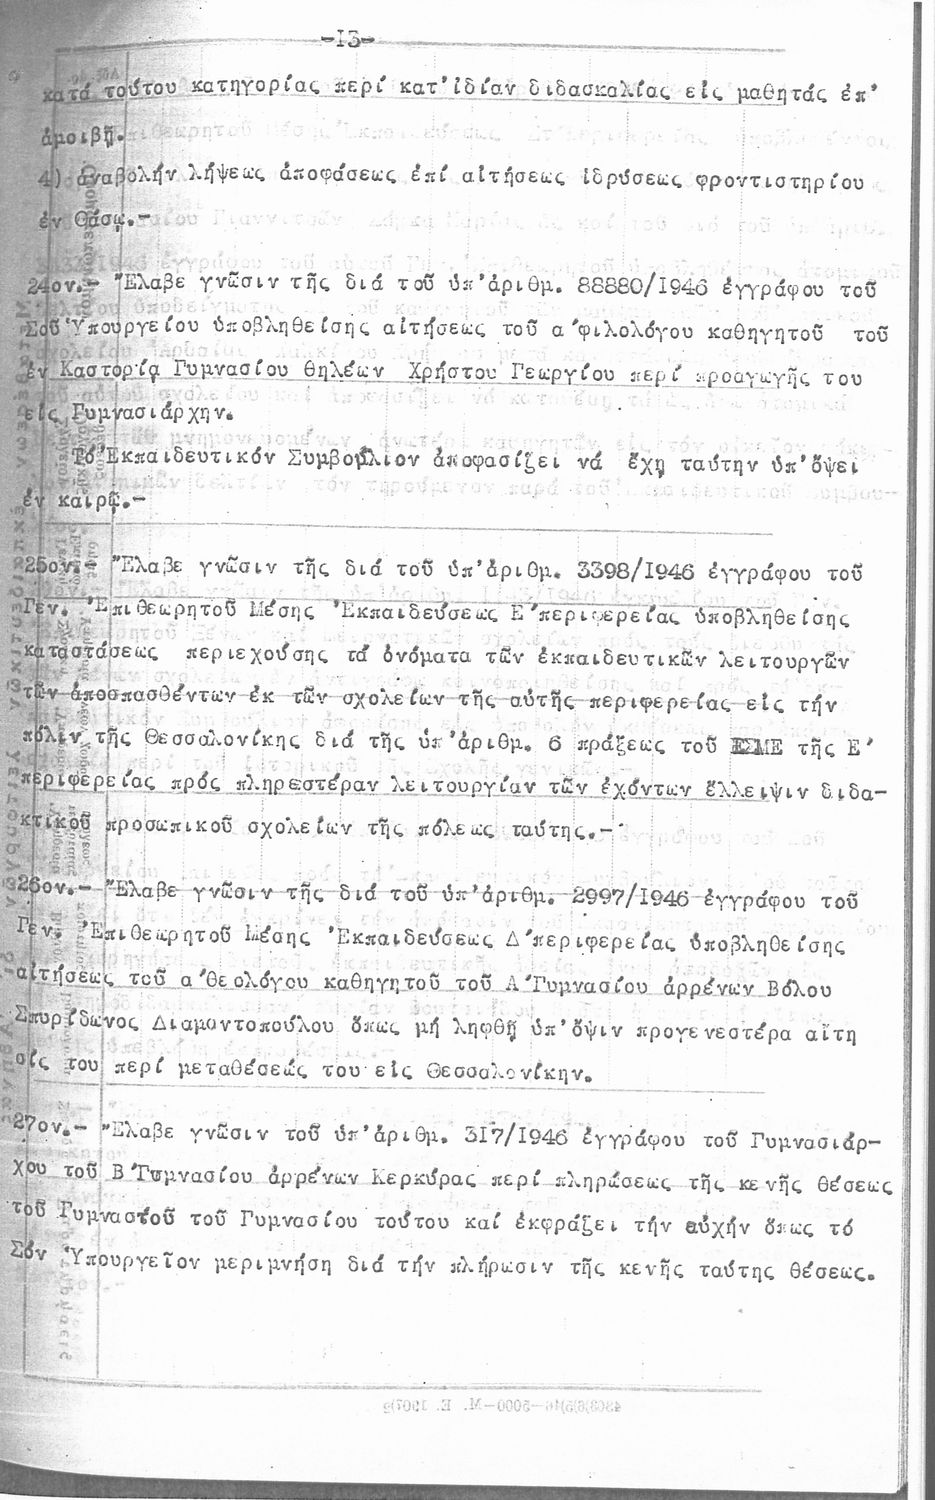 -13-
κατά τούτου κατηγορίας περί κατ'ἰδίαν διδασκαλίας εἰς μαθητάς ἐπ'
ἀμοιβῇ.
4) ἀναβολήν λήψεως ἀποφάσεως ἐπί αἰτήσεως ἱδρύσεως φροντιστηρίου
ἐν Θάσῳ.-
24ον.- Ἔλαβε γνῶσιν τῆς διά τοῦ ὑπ'ἀριθμ. 88880/1946 ἐγγράφου τοῦ
Σοῦ Ὑπουργείου ὑποβληθείσης αἰτήσεως τοῦ α'φιλολόγου καθηγητοῦ τοῦ
ἐν Καστορίᾳ Γυμνασίου θηλέων Χρήστου Γεωργίου περί προαγωγῆς του
εἰς Γυμνασιάρχην.
Τό Ἐκπαιδευτικόν Συμβούλιον ἀποφασίζει νά ἔχῃ ταύτην ὑπ'ὄψει
ἐν καιρῷ.-
25ον.- Ἔλαβε γνῶσιν τῆς διά τοῦ ὑπ'ἀριθμ. 3398/1946 ἐγγράφου τοῦ
Γεν. Ἐπιθεωρητοῦ Μέσης Ἐκπαιδεύσεως Ε'περιφερείας ὑποβληθείσης
καταστάσεως περιεχούσης τά ὀνόματα τῶν ἐκπαιδευτικῶν λειτουργῶν
τῶν ἀποσπασθέντων ἐκ τῶν σχολείων τῆς αὐτῆς περιφερείας εἰς τήν
πόλιν τῆς Θεσσαλονίκης διά τῆς ὑπ'ἀριθμ. 6 πράξεως τοῦ ΕΣΜΕ τῆς Ε'
περιφερείας πρός πληρεστέραν λειτουργίαν τῶν ἐχόντων ἔλλειψιν διδα-
κτικοῦ προσωπικοῦ σχολείων τῆς πόλεως ταύτης.-
26ον.- Ἔλαβε γνῶσιν τῆς διά τοῦ ὑπ'ἀριθμ. 2997/1946 ἐγγράφου τοῦ
Γεν. Ἐπιθεωρητοῦ Μέσης Ἐκπαιδεύσεως Δ'περιφερείας ὑποβληθείσης
αἰτήσεως τοῦ α'θεολόγου καθηγητοῦ τοῦ Α'Γυμνασίου ἀρρένων Βόλου
Σπυρίδωνος Διαμαντοπούλου ὅπως μή ληφθῇ ὑπ'ὄψιν προγενεστέρα αἴτη
σίς του περί μεταθέσεώς του εἰς Θεσσαλονίκην.
27ον.- Ἔλαβε γνῶσιν τοῦ ὑπ'ἀριθμ. 317/1946 ἐγγράφου τοῦ Γυμνασιάρ-
χου τοῦ Β'Γυμνασίου ἀρρένων Κερκύρας περί πληρώσεως τῆς κενῆς θέσεως
τοῦ Γυμναστοῦ τοῦ Γυμνασίου τούτου καί ἐκφράζει τήν εὐχήν ὅπως τό
Σόν Ὑπουργεῖον μεριμνήσῃ διά τήν πλήρωσιν τῆς κενῆς ταύτης θέσεως.